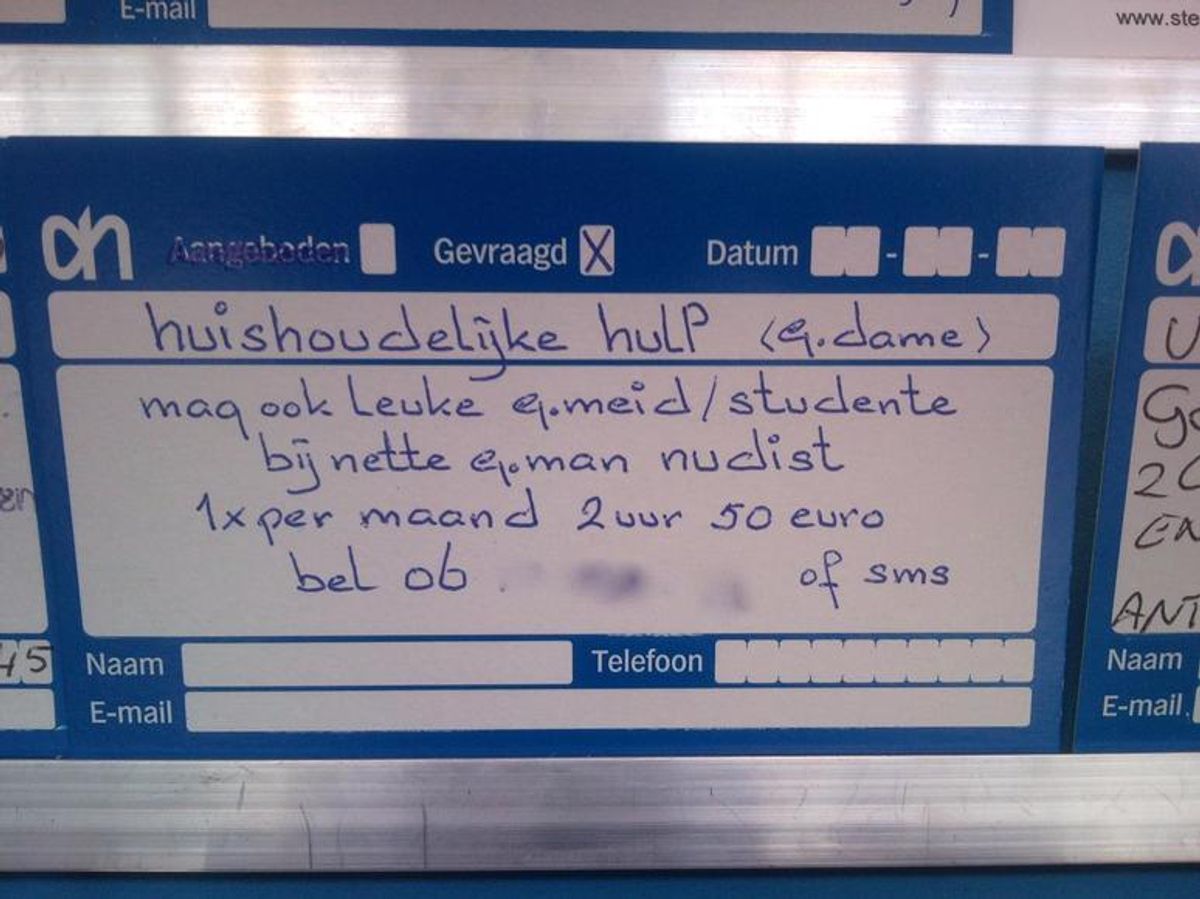 E-mail
www.ste
ah Aangeboden Gevraagd X Datum - -
huishoudelijke hulp (g.dame)
mag ook Leuke g.meid/studente
bij nette g.man nudist
1x per maand 2 uur 50 euro
bel 06 of sms
Naam Telefoon
E-mail
45
U
20
EN
ANT
Naam
E-mail